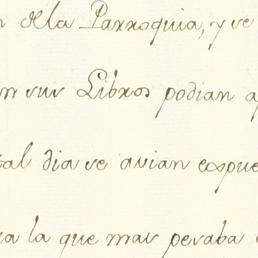 dela Parroquia, y se
en sus Libros podian a
tal dia se avian espue
ra la que mas pesaba